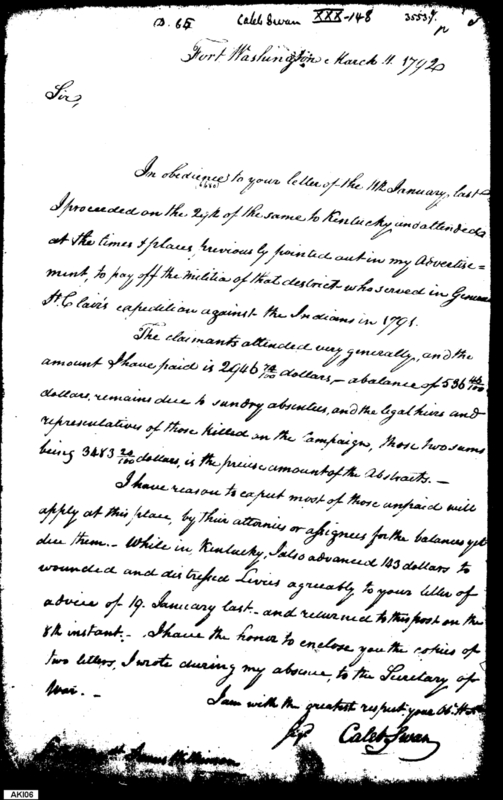 D. 65 Caleb Swan XXX-148 3553
Fort Washington March 11. 1792
Sir,
In obedience to your letter of the 11th January, last
I proceeded on the 24th of the same to Kentucky, and attended
at the times & places previously pointed out in my Advertise=
ment, to pay off the militia of that district who served in General
St. Clair's expedition against the Indians in 1791.
The claimants attended very generally, and the
amount I have paid is 2946 74/100 dollars, - a balance of 536 46/100
dollars, remains due to sundry absentees, and the legal heirs and
representatives of those killed on the Campaign, those two sums
being 3483 20/100 dollars, is the precise amount of the Abstracts. -
I have reason to expect most of those unpaid will
apply at this place, by their attornies or assignees for the balances yet
due them. - While in, Kentucky, I also advanced 143 dollars to
wounded and distressed Levies agreably to your letter of
advice of 19. January last. - and returned to this post on the
8th instant. - I have the honor to enclose you the copies of
two letters, I wrote during my absence, to the Secretary of
War. -
I am with the greatest respect, your Ob. H
Caleb Swan
James Wilkinson
AKI06